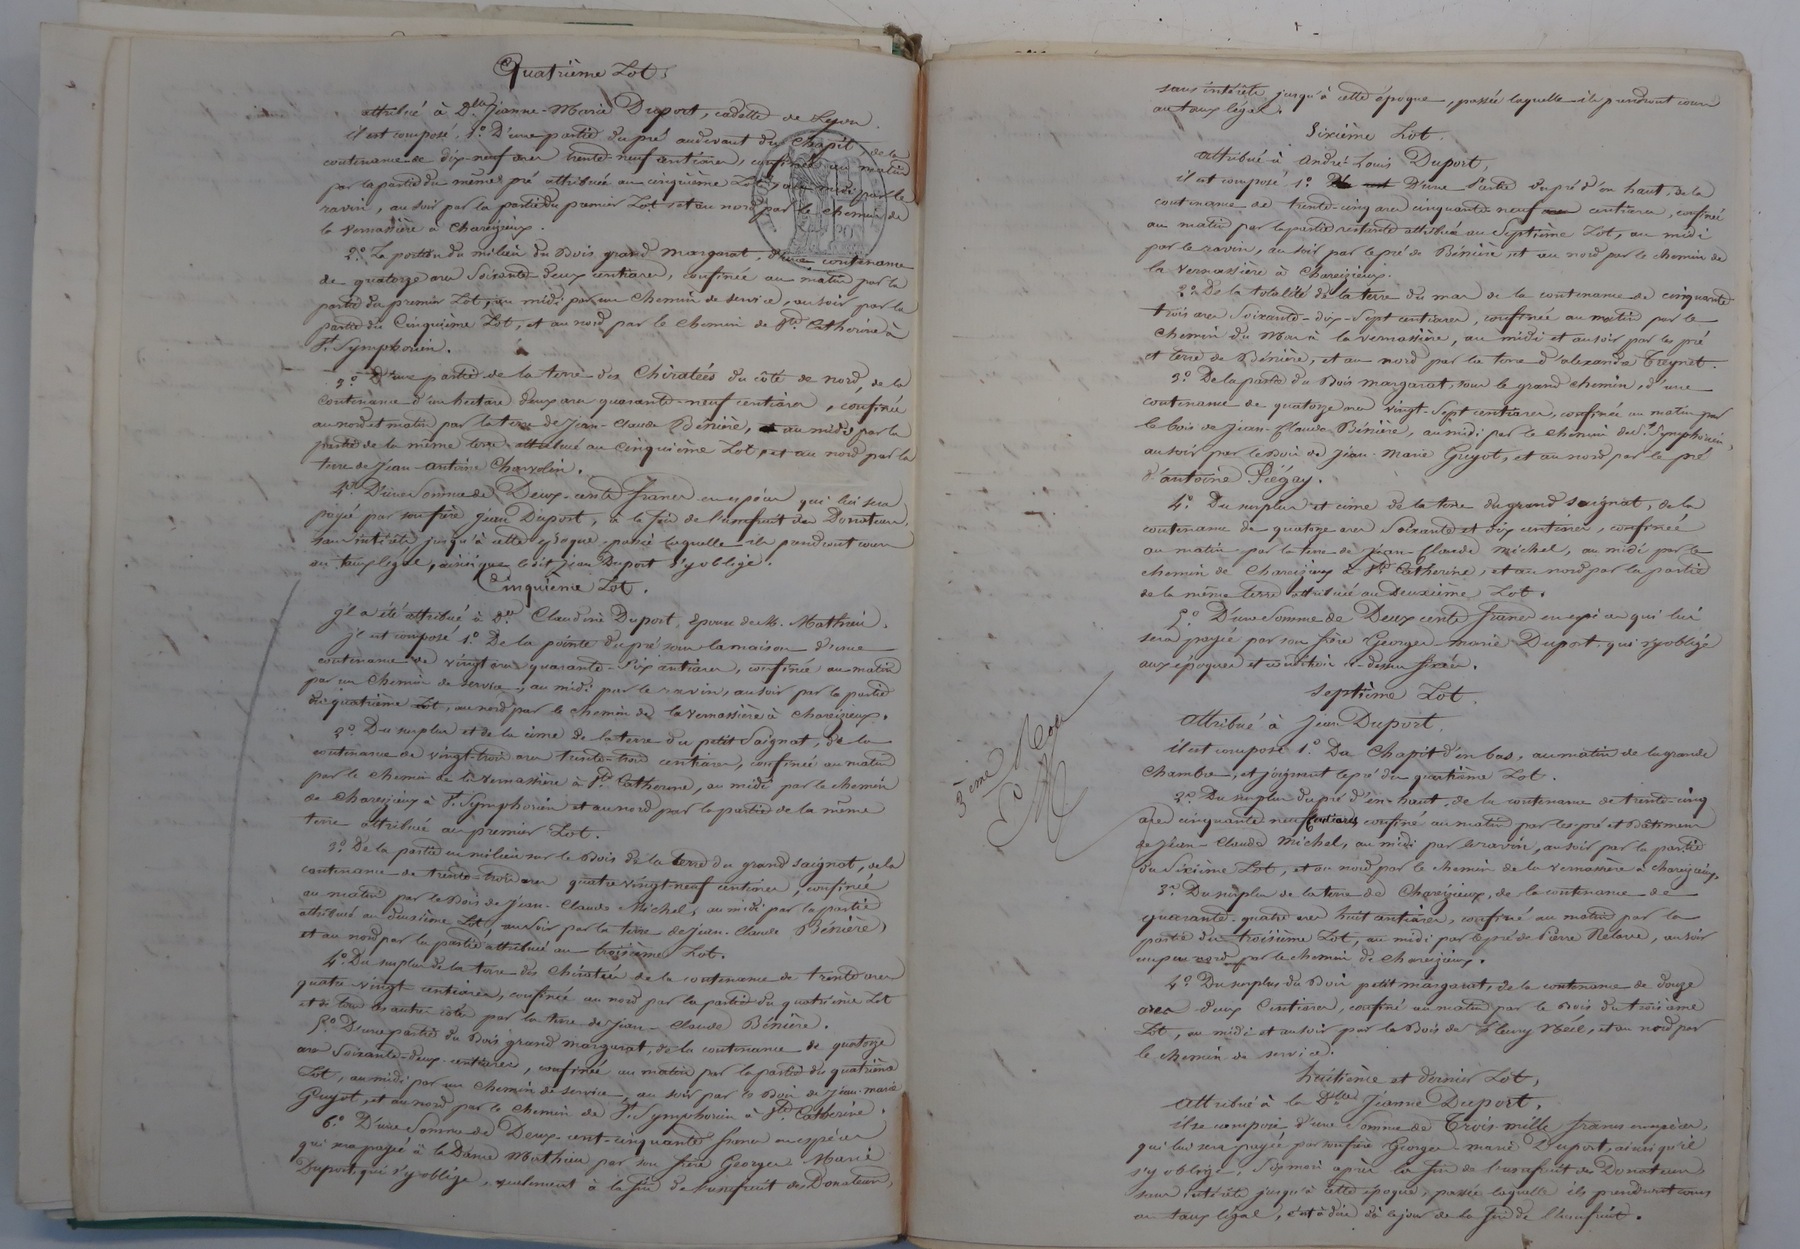 Quatrième Lot.
attribué à Dlle Jeanne-Marie Duport, cadette de Lyon.
il est composé, 1º D'une partie du pré audevant du Chapit, de la
contenance de dix-neuf ares trente-neuf centiares, confiné au matin
par la partie du même pré attribuée au cinquième Lot, au midi par le
ravin, au soir par la partie du premier Lot, et au nord par le chemin de
la Vernassière à Chareizieux.
2º La portion du milieu du Bois grand margnat, d'une contenance
de quatorze ares Soixante-deux centiares, confinée au matin par la
partie du premier Lot, au midi par un chemin de service, au soir par la
partie du Cinquième Lot, et au nord par le chemin de Ste Catherine à
St Symphorien.
3º D'une partie de la terre des Chiratées du côté de nord, de la
contenance d'un hectare deux ares quarante-neuf centiares, confinée
au nord et matin par la terre de Jean-Claude Bénière, au midi par la
partie de la même terre attribuée au Cinquième Lot, et au nord par la
terre de Jean-Antoine Charvolin.
4º D'une Somme de Deux-cents francs en espèces qui lui sera
payée par son frère Jean Duport, à la fin de l'usufruit des Donateurs,
sans intérêts jusqu'à cette époque, passée laquelle ils prendront cours
au taux légal, ainsi que ledit Jean Duport s'y oblige.
Cinquième Lot.
Il a été attribué à De Claudine Duport, épouse de M. Mathieu.
Il est composé 1º De la pointe du pré sous la maison d'une
contenance de vingt ares quarante-Six centiares, confinée au matin
par un chemin de service, au midi par le ravin, au soir par la partie
du quatrième Lot, au nord par le chemin de la Vernassière à Chareizieux.
2º Du surplus et de la cime de la terre du petit Saignat, de la
contenance de vingt-trois ares trente-trois centiares, confinée au matin
par le chemin de la Vernassière à Ste Catherine, au midi par le chemin
de Chareizieux à St Symphorien et au nord par la partie de la même
terre attribuée au premier Lot.
3º De la partie du milieu sur le Bois de la terre du grand Saignat, de la
contenance de trente-trois ares quatre vingt neuf centiares, confinée
au matin par le Bois de Jean-Claude Michel, au midi par la partie
attribuée au deuxième Lot, au soir par la terre de Jean-Claude Bénière,
et au nord par la partie attribuée au troisième Lot.
4º Du surplus de la terre des Chiratées de la contenance de trente ares
quatre vingt centiares, confinée au nord par la partie du quatrième Lot
et de tous les autres côtés par la terre de Jean-Claude Bénière.
5º D'une partie du Bois grand margarat, de la contenance de quatorze
ares Soixante-deux centiares, confinée au matin par la partie du quatrième
Lot, au midi par un chemin de service, au soir par le Bois de Jean-marie
Guyot, et au nord par le chemin de St Symphorien à Ste Catherine.
6º D'une Somme de Deux-cent-cinquante francs en espèces
qui sera payée à la Dame Mathieu par son frère Georges-Marie
Duport, qui s'y oblige, seulement à la fin de l'usufruit des Donateurs,
sans intérêts jusqu'à cette époque, passée laquelle ils prendront cours
au taux légal.
Sixième Lot.
attribué à André-Louis Duport,
il est composé 1º D'une Partie du pré d'en haut, de la
contenance de trente-cinq ares cinquante-neuf centiares, confiné
au matin par la partie restante attribuée au Septième Lot, au midi
par le ravin, au soir par le pré de Bénière, et au nord par le chemin de
la Vernassière à Chareizieux.
2º De la totalité de la terre du mas de la contenance de cinquante-
trois ares Soixante-dix-Sept centiares, confinée au matin par le
chemin du Mas à la Vernassière, au midi et au soir par les pré
et terre de Bénière, et au nord par la terre d'alexandre
3º De la partie du Bois margarat, sous le grand chemin, d'une
contenance de quatorze ares vingt-Sept centiares, confinée au matin par
le bois de Jean-Claude Bénière, au midi par le chemin de St Symphorien,
au soir par le Bois de Jean-Marie Guyot, et au nord par le pré
d'antoine Piégay.
4º Du surplus et cime de la terre du grand Saignat, de la
contenance de quatorze ares Soixante et dix centiares, confinée
au matin par la terre de Jean-Claude Michel, au midi par le
chemin de Chareizieux à Ste Catherine, et au nord par la partie
de la même terre attribuée au Deuxième Lot.
5º D'une Somme de Deux cents francs en espèces qui lui
sera payée par son frère Georges-marie Duport qui s'y oblige
aux époques et conditions ci-dessus fixées.
Septième Lot.
Attribué à Jean Duport.
il est composé 1º Du Chapit d'en bas, au matin de la grande
Chambre, et joignant le pré du quatrième Lot.
2º Du surplus du pré d'en haut, de la contenance de trente-cinq
ares cinquante neuf centiares confiné au matin par les pré et Bâtiment
de Jean-Claude Michel, au midi par le ravin, au soir par la partie
du Sixième Lot, et au nord par le chemin de la Vernassière à Chareizieux.
3º Du surplus de la terre de Chareizieux, de la contenance de
quarante-quatre ares huit centiares, confiné au matin par la
partie du troisième Lot, au midi par le pré de Pierre au soir
par le chemin de Chareizieux.
4º Du surplus du Bois petit margarat, de la contenance de douze
ares deux Centiares, confiné au matin par le Bois du troisième
Lot, au midi et au soir par le Bois de Fleury et au nord par
le chemin de service.
huitième et dernier Lot,
Attribué à la Dlle Jeanne Duport.
il se compose d'une Somme de Trois mille francs en espèces,
qui lui sera payée par son frère Georges-marie Duport, ainsi qu'il
s'y oblige, Six mois après la fin de l'usufruit des Donateurs
sans intérêts jusqu'à cette époque, passée laquelle ils prendront cours
au taux légal, c'est à dire dès le jour de la fin de l'usufruit.
3ème